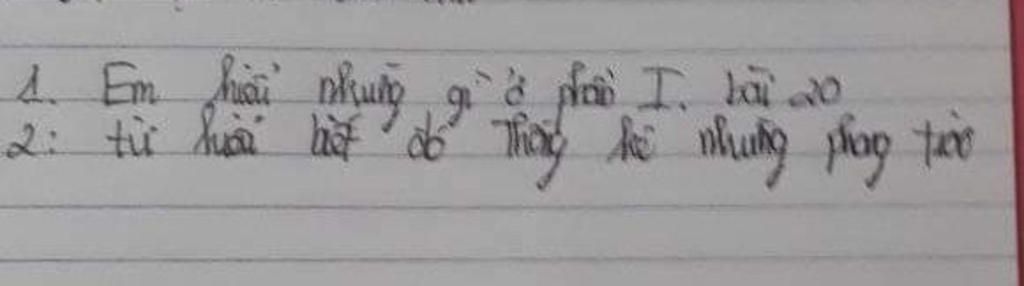 1. Em hiểu những gì ở phần I. bài 20
2: từ hiểu biết đó Thống kê những phong trào